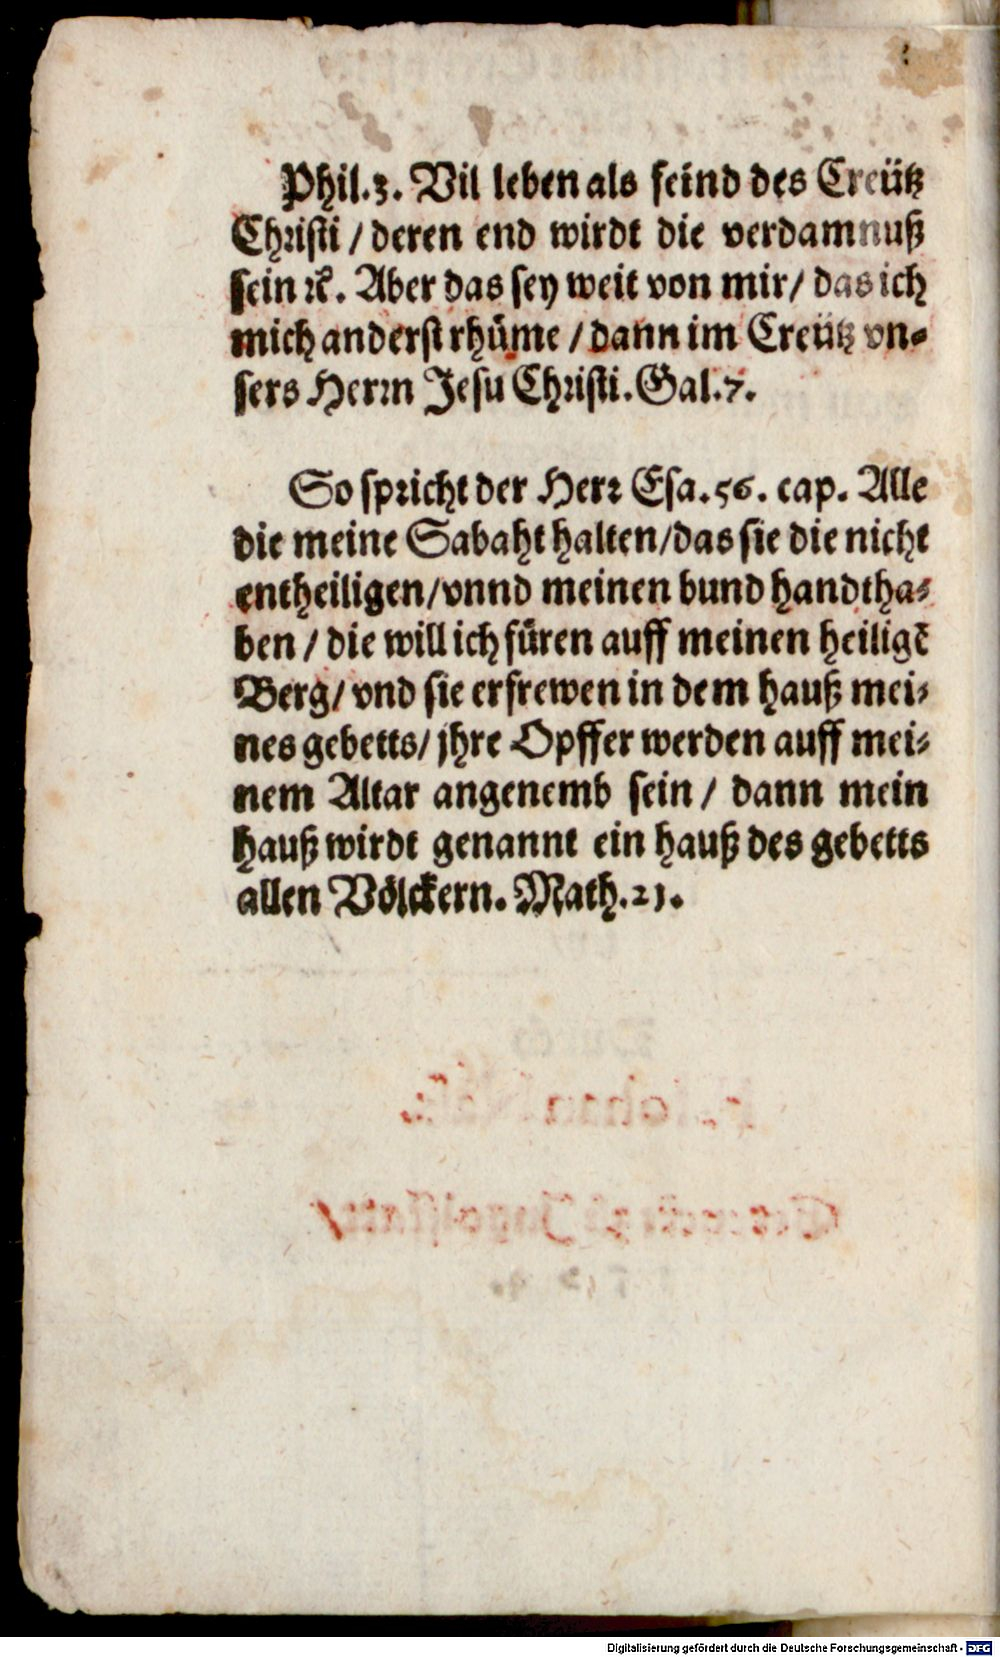 Phil.3. Vil leben als feind des Creütz
Christi / deren end wirdt die verdamnuß
sein ꝛc̃. Aber das sey weit von mir / das ich
mich anderst rhüme / dann im Creütz vn⸗
sers Herrn Jesu Christi. Gal.7.
So spricht der Herr Esa.56. cap. Alle
die meine Sabaht halten / das sie die nicht
entheiligen / vnnd meinen bund handtha⸗
ben / die will ich füren auff meinen heiligẽ
Berg / vnd sie erfrewen in dem hauß mei⸗
nes gebetts / jhre Opffer werden auff mei⸗
nem Altar angenemb sein / dann mein
hauß wirdt genannt ein hauß des gebetts
allen Völckern. Math.21.
Digitalisierung gefördert durch die Deutsche Forschungsgemeinschaft - DFG